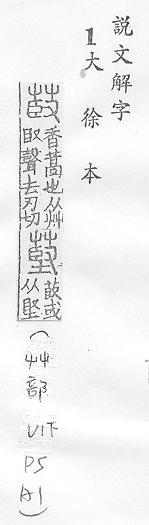 說文解字
1大徐本
菣
香蒿也从艸
臤聲去刃切
菣或
从堅
(艸部
V1下
P5
A1)